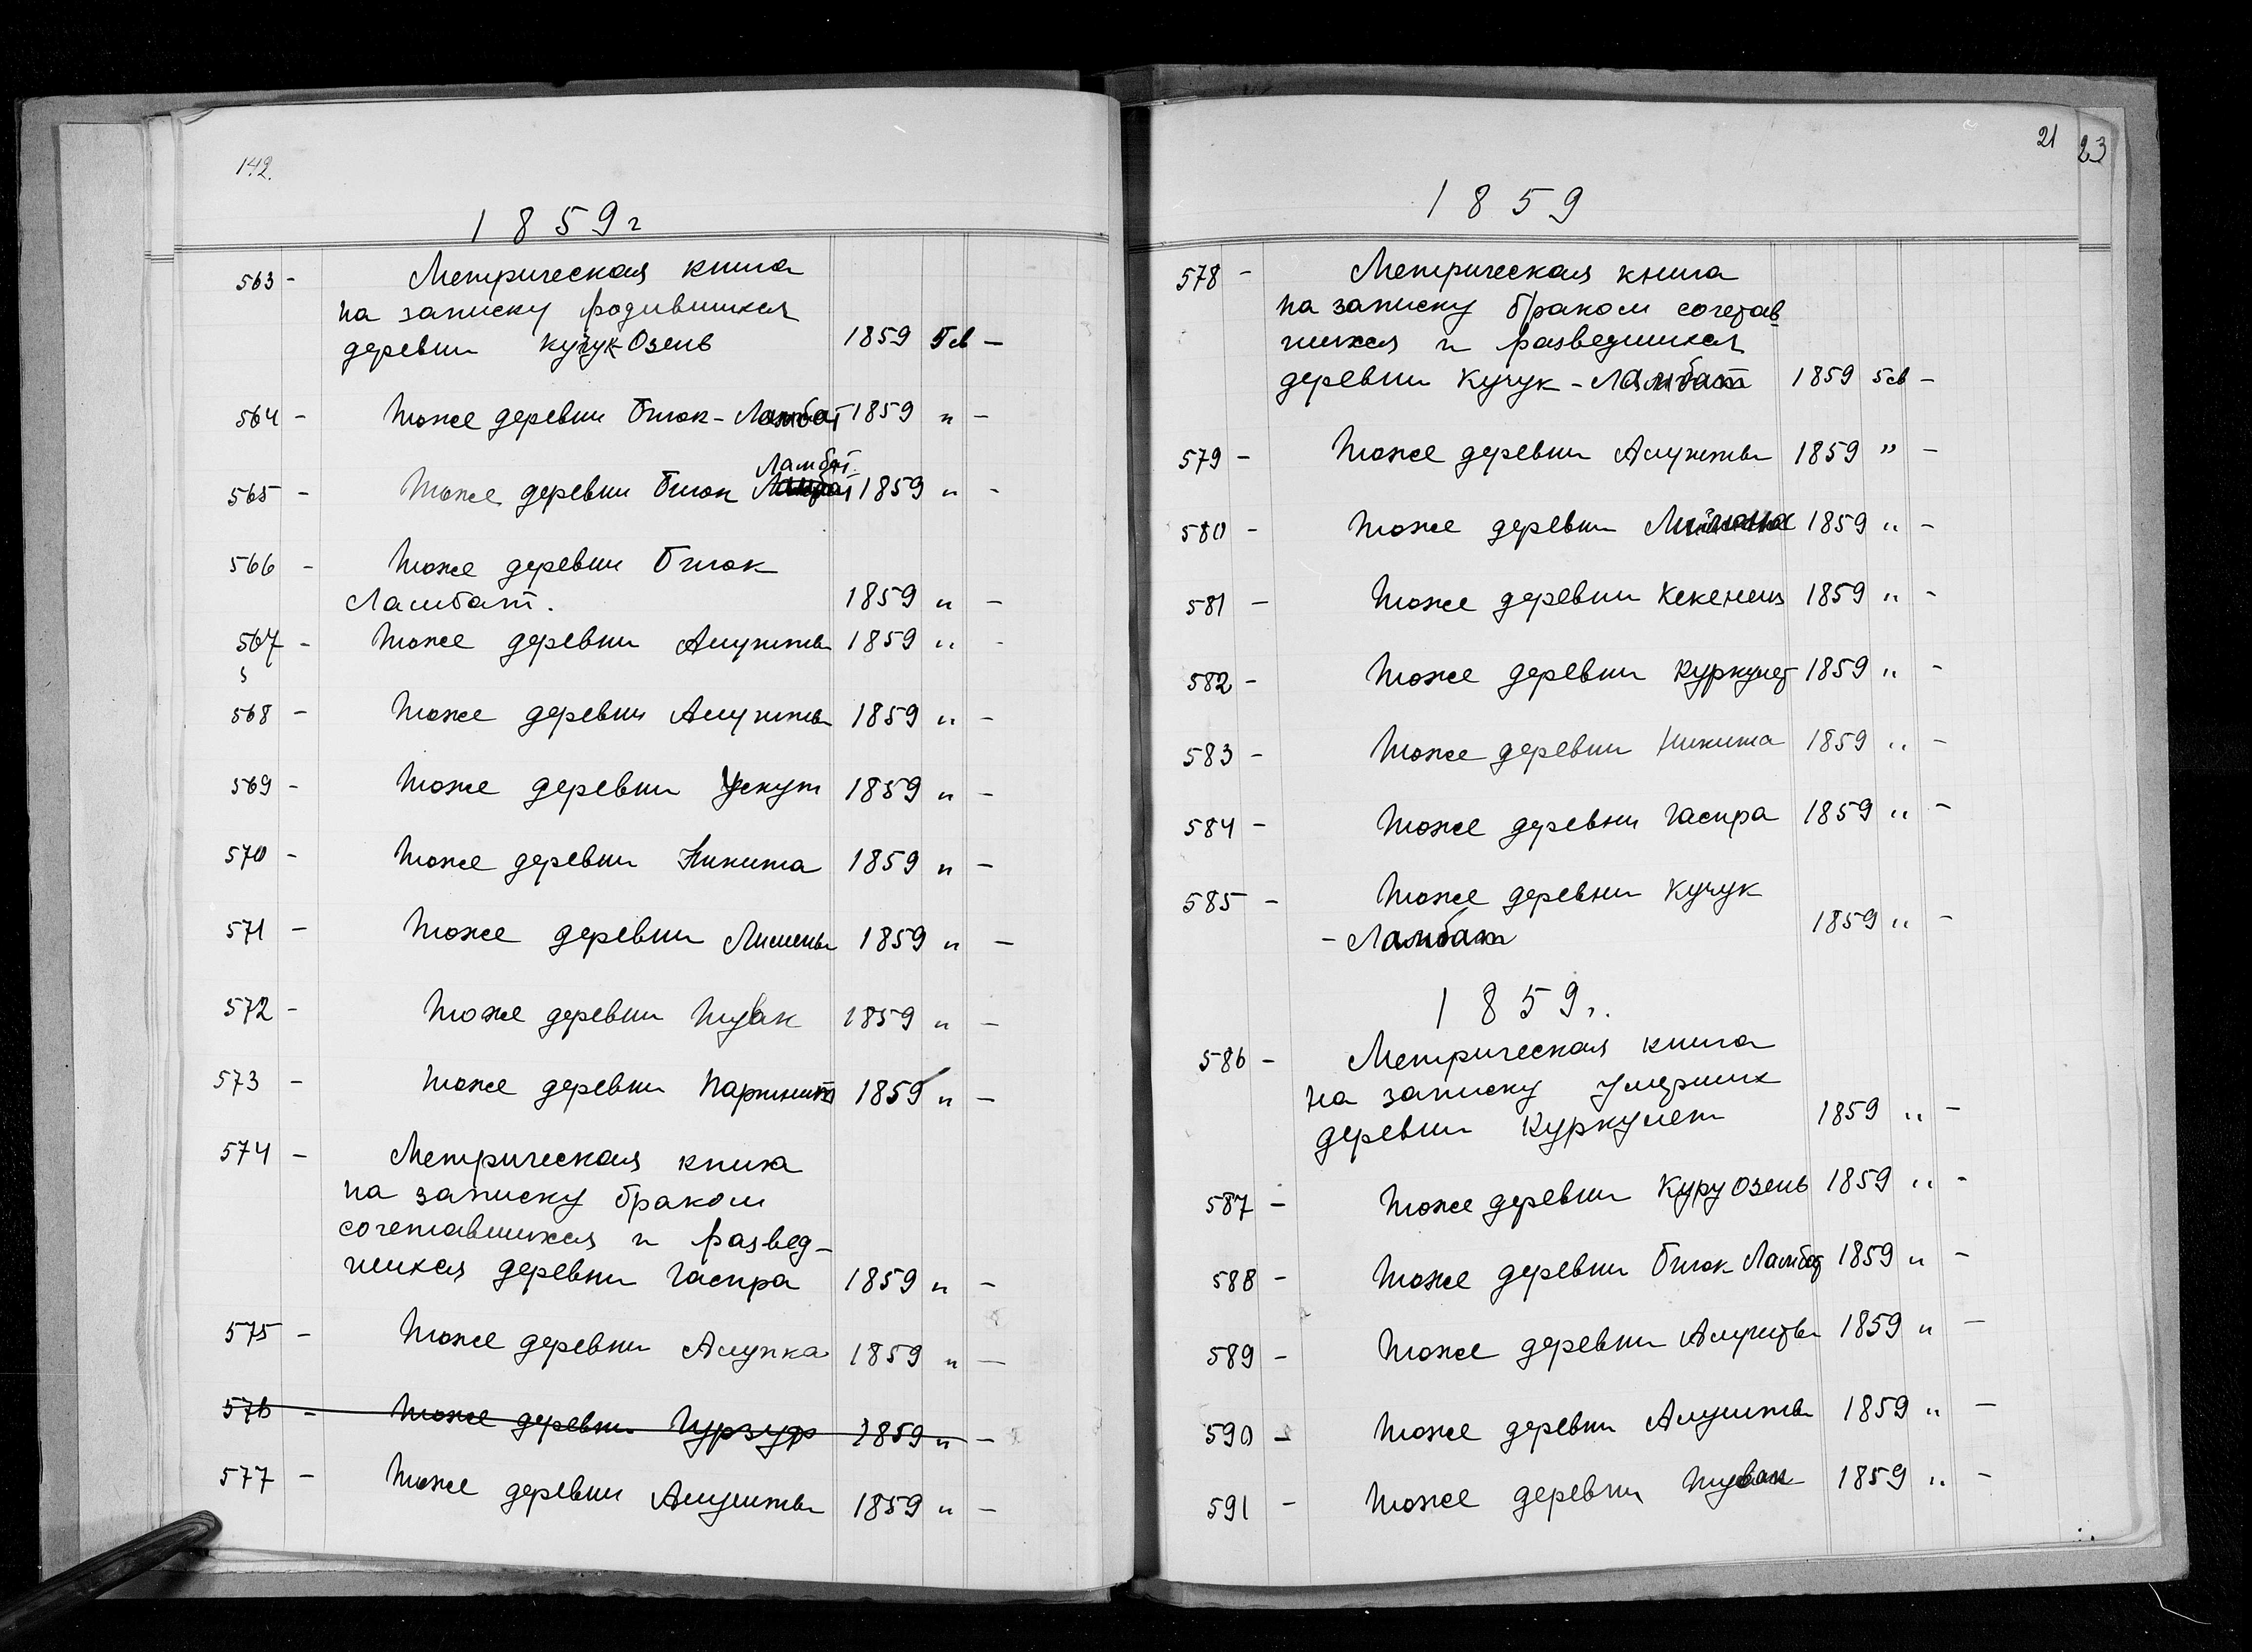 142.
1859г
563 - Метрическая книга
на записку родившихся
деревни Кучук-Озень 1859 5св -
564 - Тоже деревни Биюк-Ламбат 1859 " -
Ламбат
565 - Тоже деревни Биюк 1859 " -
566 - Тоже деревни Биюк
Ламбат. 1859 " -
567 - Тоже деревни Алушты 1859 " -
568 - Тоже деревни Алушты 1859 " -
569 - Тоже деревни Ускут 1859 " -
570 - Тоже деревни Никита 1859 " -
571 - Тоже деревни Лимены 1859 " -
572 - Тоже деревни Тувак 1859 " -
573 - Тоже деревни Партенит 1859 " -
574 - Метрическая книга
на записку браком
сочетавшихся и развед-
шихся деревни Гаспра 1859 " -
575 - Тоже деревни Алупка 1859 " -
576 - Тоже деревни Гурзуф 1859 " -
577 - Тоже деревни Алушты 1859 " -
21 23
1859
578 - Метрическая книга
на записку браком сочетав
шихся и разведшихся
деревни Кучук-Ламбат 1859 5св -
579 - Тоже деревни Алушты 1859 " -
580 - Тоже деревни 1859 " -
581 - Тоже деревни Кекенеиз 1859 " -
582 - Тоже деревни Куркулет 1859 " -
583 - Тоже деревни Никита 1859 " -
584 - Тоже деревни Гаспра 1859 " -
585 - Тоже деревни Кучук
- Ламбат 1859 " -
1859г.
586 - Метрическая книга
на записку умерших
деревни Куркулет 1859 " -
587 - Тоже деревни Куру Озень 1859 " -
588 - Тоже деревни Биюк Ламбат 1859 " -
589 - Тоже деревни Алушты 1859 " -
590 - Тоже деревни Алушты 1859 " -
591 - Тоже деревни Тувак 1859 " -